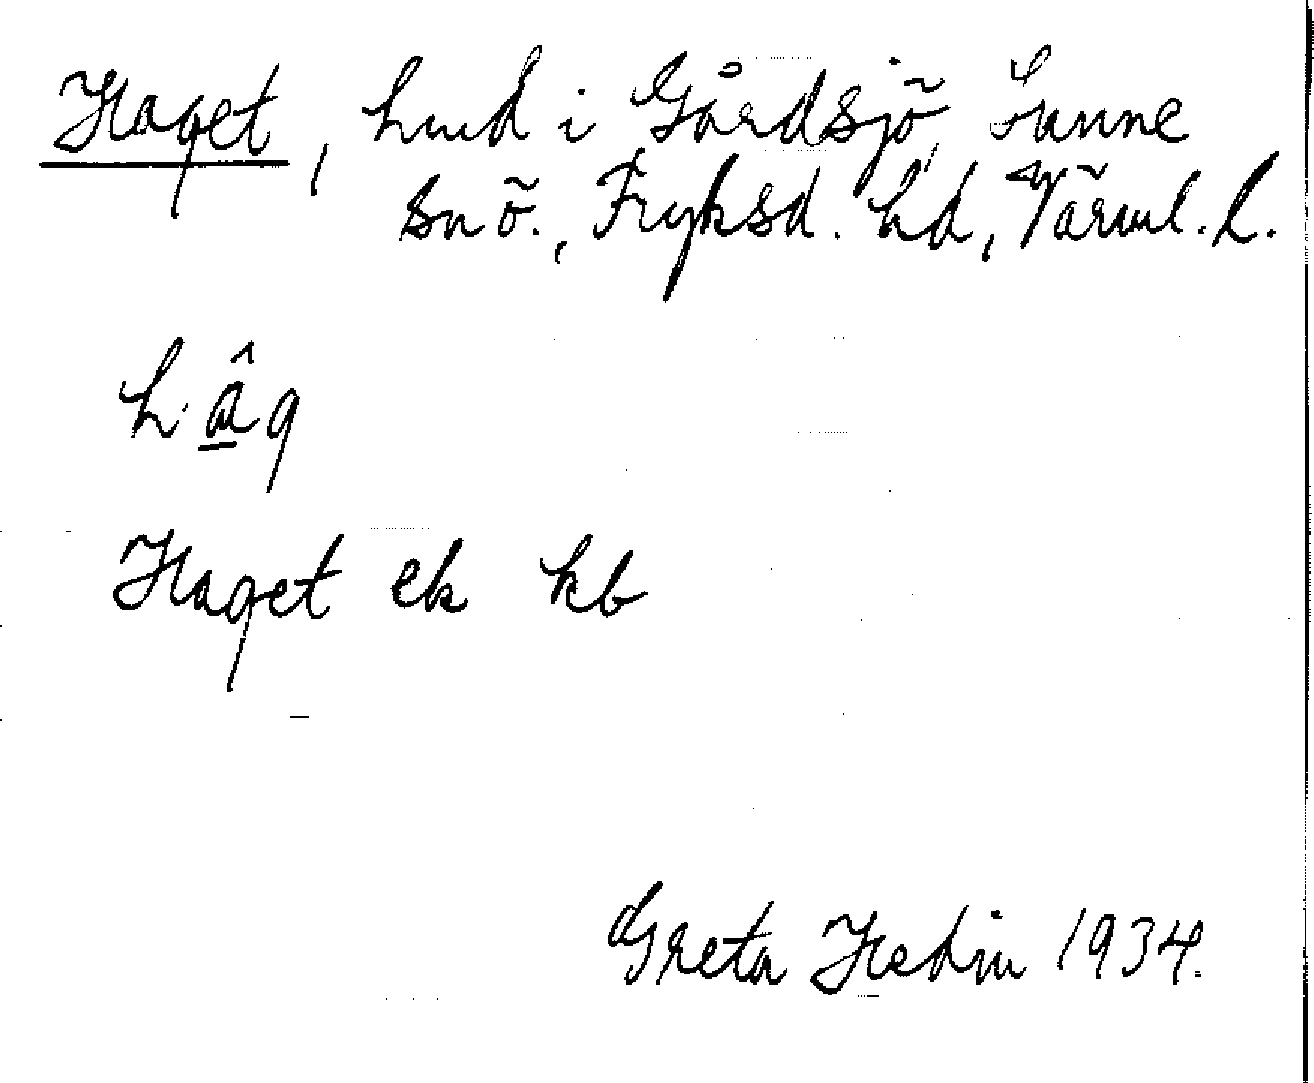 Haget, hmd i Gårdsjö, Sunne
snö., Fryksd. hd, Värml. l.
hâg
Haget ek kb
Greta Hedin 1934.